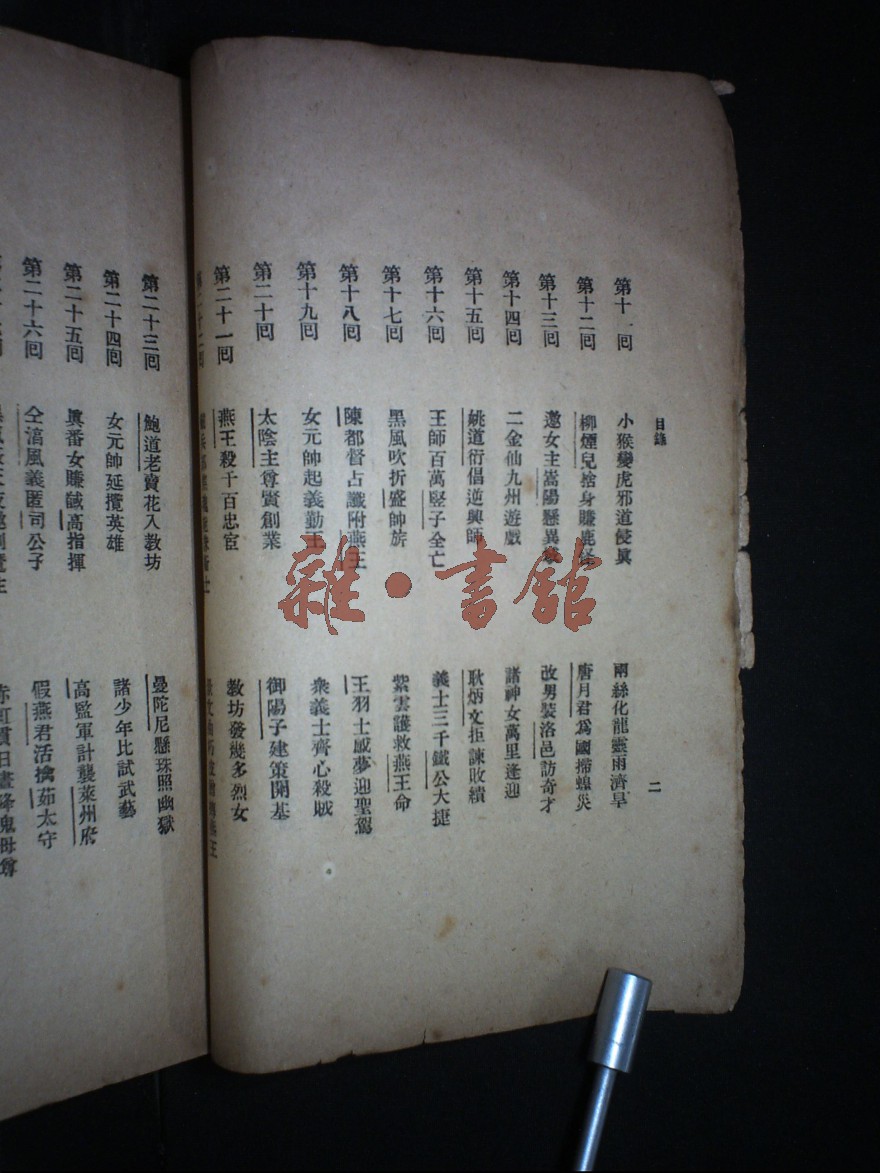 目錄
二
第十一回 小猴變虎邪道侵眞 兩絲化龍靈雨濟旱
第十二回 柳煙兒捨身賺鹿怪 唐月君爲國掃蝗災
第十三回 邀女主嵩陽懸異 改男裝洛邑訪奇才
第十四回 二金仙九州遊戲 諸神女萬里逢迎
第十五回 姚道衍倡逆興師 耿炳文拒諫敗績
第十六回 王師百萬竪子全亡 義士三千鐵公大捷
第十七回 黑風吹折盛帥旂 紫雲護救燕王命
第十八回 陳都督占讖附燕王 王羽士感夢迎聖駕
第十九回 女元帥起義勤王 衆義士齊心殺賊
第二十回 太陰主尊賢創業 御陽子建策開基
第二十一回 燕王殺千百忠宦 教坊發幾多烈女
第二十三回 鮑道老賣花入教坊 曼陀尼懸珠照幽獄
第二十四回 女元帥延攬英雄 諸少年比試武藝
第二十五回 眞番女賺馘高指揮 高監軍計襲萊州府
第二十六回 仝淓風義匿司公子 假燕君活擒茹太守
雜·書館